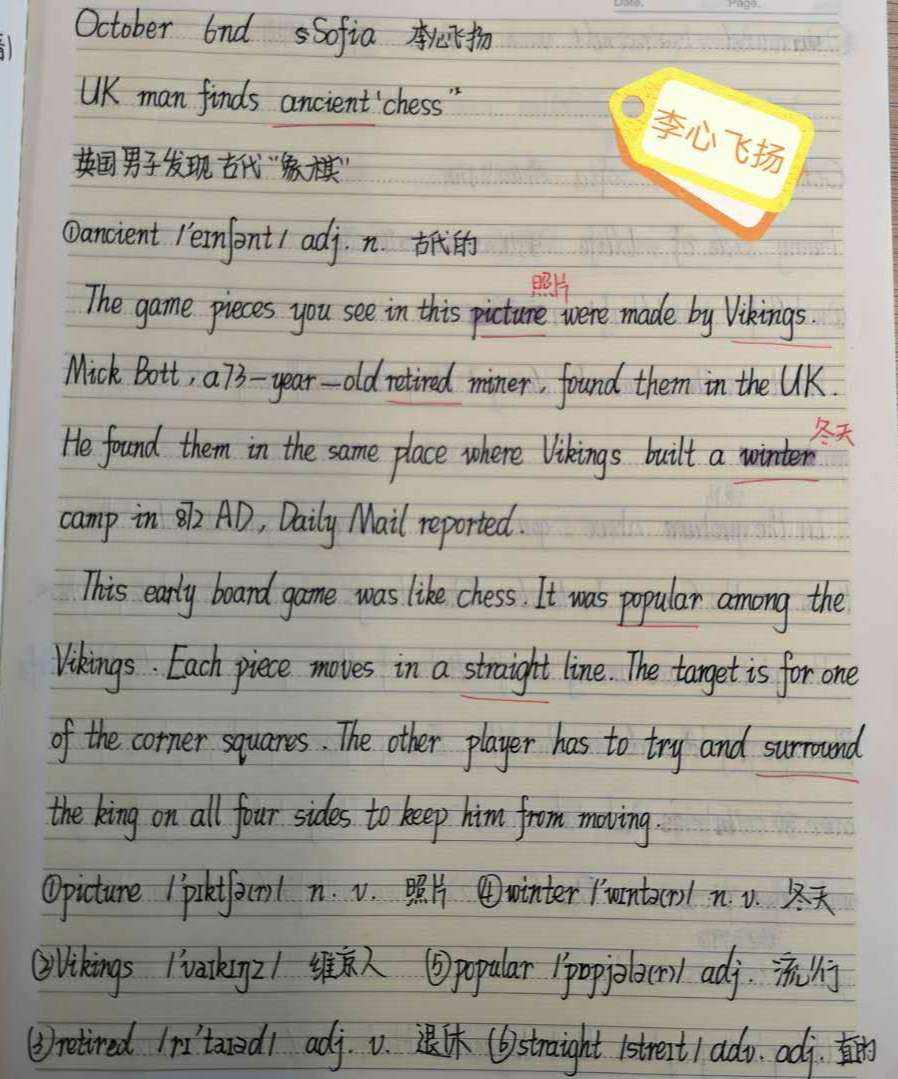 October 6nd sSofia 李心飞扬
李心飞扬
UK man finds ancient 'chess"
英国男子发现古代"象棋"
①ancient /'eɪnʃənt/ adj. n. 古代的
照片
The game pieces you see in this picture were made by Vikings.
Mick Bott, a 73-year-old retired miner, found them in the UK.
冬天
He found them in the same place where Vikings built a winter
camp in 872 AD, Daily Mail reported.
This early board game was like chess. It was popular among the
Vikings. Each piece moves in a straight line. The target is for one
of the corner squares. The other player has to try and surround
the king on all four sides to keep him from moving.
①picture /'pɪktʃə(r)/ n. v. 照片 ④winter /'wɪntə(r)/ n. v. 冬天
②Vikings /'vaɪkɪŋz/ 维京人 ⑤popular /'pɒpjələ(r)/ adj. 流行
③retired /rɪ'taɪəd/ adj. v. 退休 ⑥straight /streɪt/ adv. adj. 直的